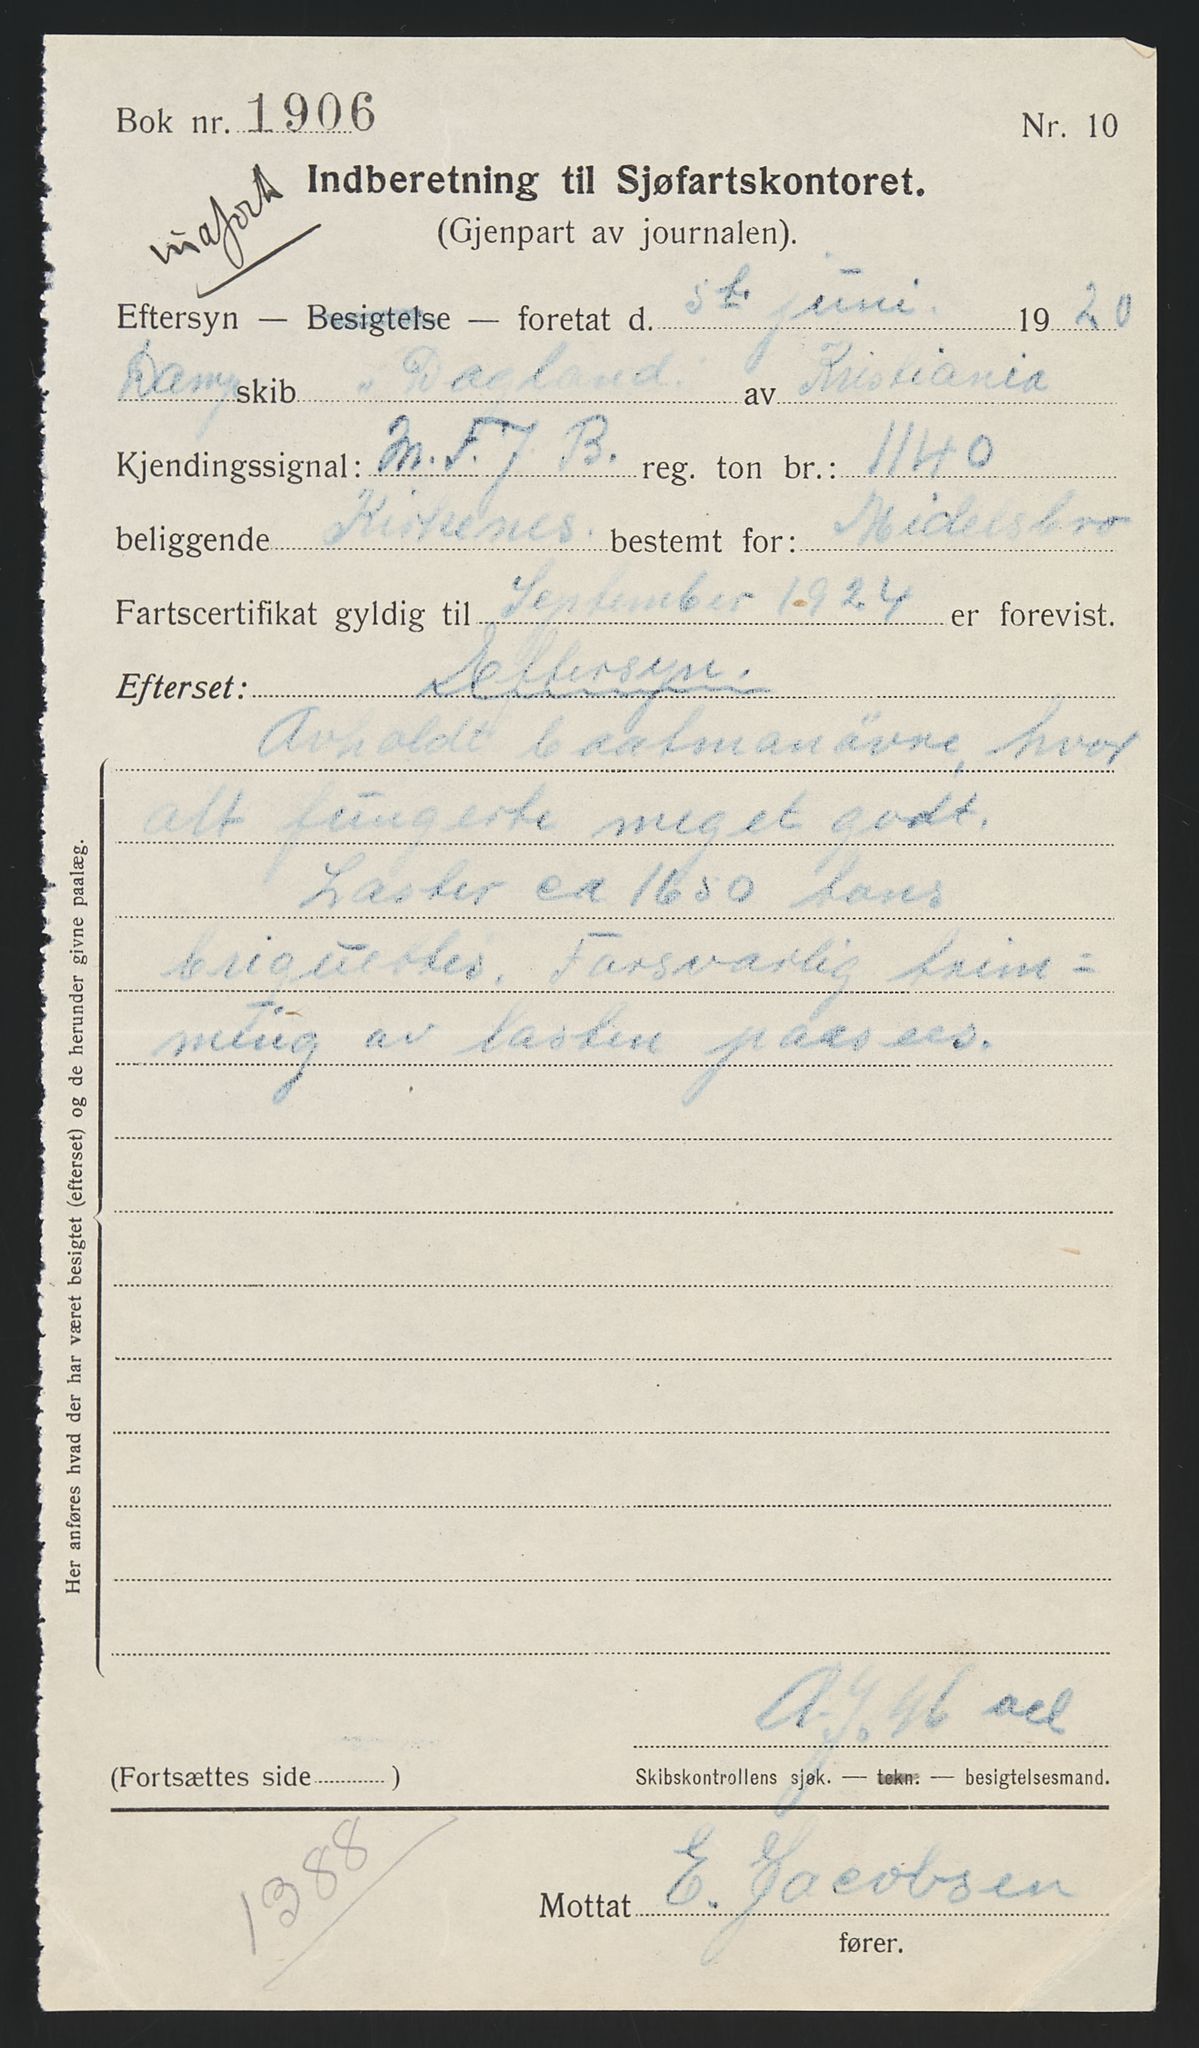 Bok nr. 1906 Nr. 10
Indberetning til Sjøfartskontoret.
(Gjenpart av journalen).
Eftersyn — Besigtelse — foretat d. 5te juni. 1920
Dampskib "Dagland" av Kristiania
Kjendingssignal: M.F.J.B. reg. ton br.: 1140
beliggende Kirkenes. bestemt for: Midelsbro
Fartscertifikat gyldig til September 1924 er forevist.
Efterset: Eftersyn.
Avholdt baatmanövre, hvor
alt fungerte meget godt.
Laster ca 1650 tons
briquettes. Forsvarlig trim=
ming av lasten paasees.
Her anføres hvad der har været besigtet (efterset) og de herunder givne paalæg.
(Fortsættes side )
Skibskontrollens sjøk. — tekn. — besigtelsesmand.
1388
Mottat E. Jacobsen
fører.